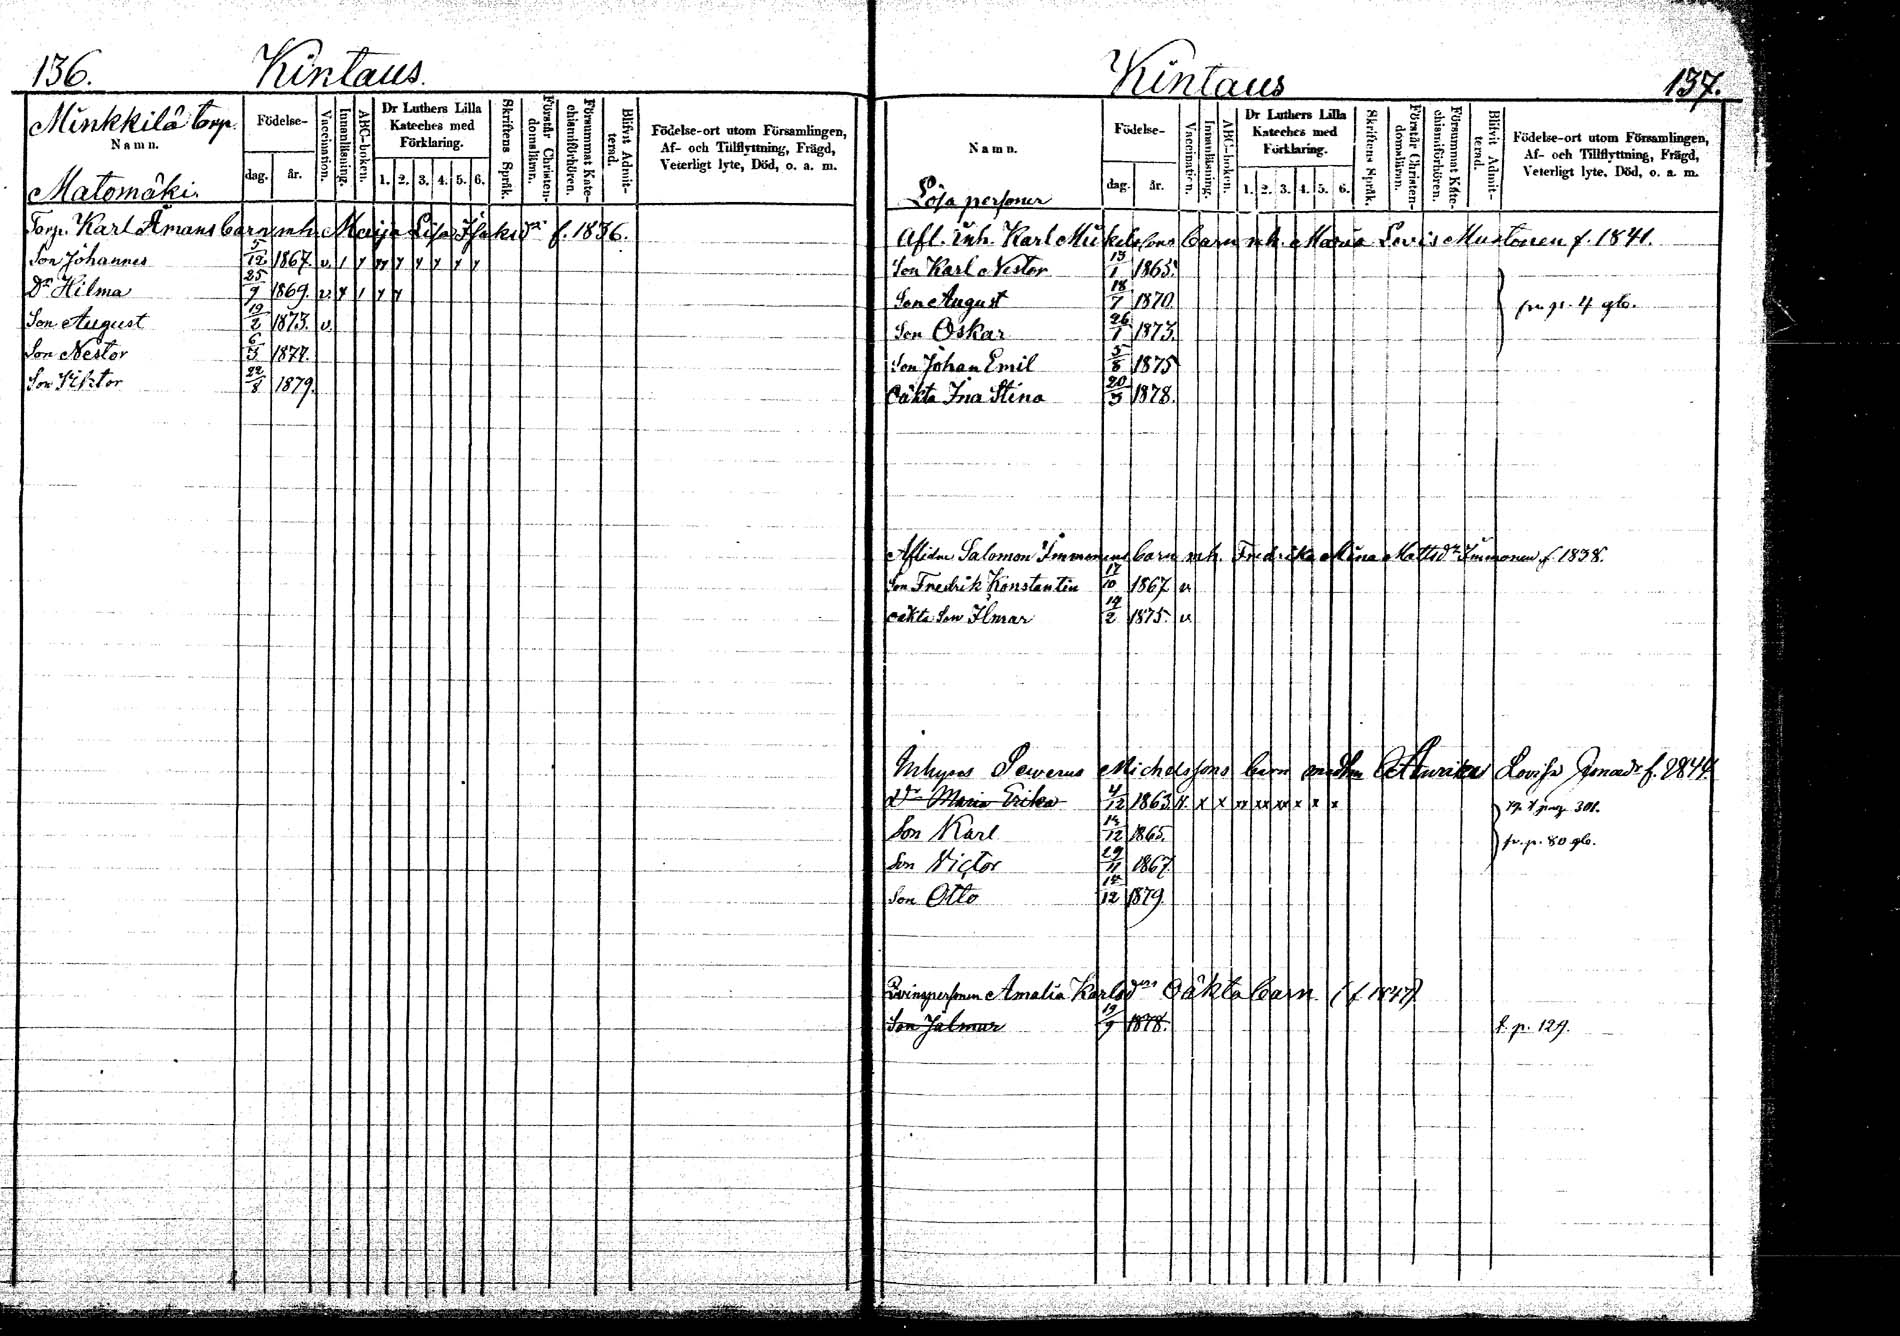 136. Kintaus.
Minkkilä torp.
Namn.
Födelse-
dag. år.
Vaccination.
Innanläsning.
ABC-boken.
Dr Luthers Lilla
Kateches med
Förklaring.
1. 2. 3. 4. 5. 6.
Skriftens Språk.
Förstår Christen-
domsläran.
Försummat Kate-
chismiförhören.
Blifvit Admit-
terad.
Födelse-ort utom Församlingen,
Af- och Tillflyttning, Frägd,
Veterligt lyte, Död, o. a. m.
Matomäki.
Torp. Karl Åmans barn mh. Maija Lisa Isaksdr f. 1836.
Son Johannes 5/12 1867. v.
Dr Hilma 25/9 1869. v.
Son August 19/2 1873. v.
Son Nestor 6/3 1877.
Son Viktor 22/8 1879.
Kintaus 137.
Namn.
Födelse-
dag. år.
Vaccination.
Innanläsning.
ABC-boken.
Dr Luthers Lilla
Kateches med
Förklaring.
1. 2. 3. 4. 5. 6.
Skriftens Språk.
Förstår Christen-
domsläran.
Försummat Kate-
chismiförhören.
Blifvit Admit-
terad.
Födelse-ort utom Församlingen,
Af- och Tillflyttning, Frägd,
Veterligt lyte, Död, o. a. m.
Lösa personer
Afl. Inh. Karl Mikelssons barn mh. Maria Lovis Mustonen f. 1841.
Son Karl Nestor 13/1 1865.
Son August 18/7 1870. fr. p. 4 glb.
Son Oskar 26/1 1873.
Son Johan Emil 5/8 1875
Oäkta Ina Stina 20/3 1878.
Aflidne Salomon Immonens barn mh. Fredrika Mina Mattsdr Immonen f. 1838.
Son Fredrik Konstantin 17/10 1867 v.
oäkta Son Ilmar 19/2 1875. v.
Inhyses Severus Michelssons barn med hu Lovisa f. 1844
Dr Maria Erika 4/12 1863 x x xx xx xx x x x 301.
Son Karl 12 1865. fr. p. 80 glb.
Son Victor 29/11 1867.
Son Otto 12 1879
Qvinspersonen Amalia Karlsdrs Oäkta barn (f. 1847)
Son Jalmar 19/9 1878. f. p. 129.